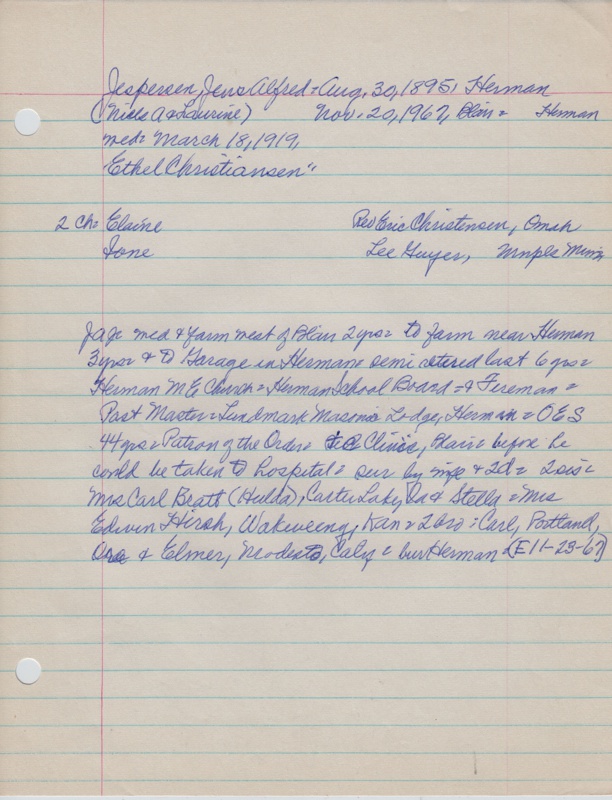 Jespersen, Jens Alfred = Aug. 30, 1895, Herman
(Niels A & Laurine) Nov. 20, 1967, Blair = Herman
med = March 18, 1919,
"Ethel Christiansen"
2 ch = Elaine Rev Eric Christensen, Omah
Ione Lee Guyer, Mnpls Minn
JAJ = med & farm west of Blair 2 yrs = to farm near Herman
3 yrs = & to Garage in Herman = semi retered last 6 yrs =
Herman M E Church = Herman School Board = & Fireman =
Past Master = Landmark Masonic Lodge, Herman = OES
44 yrs = Patron of the Order = Clinic, Blair = before he
could be taken to hospital = sur by wife & 2d = 2 sis =
Mrs Carl Bratt (Hulda), Carter Lake, Ia & Stella = Mrs
Edwin Hirsh, Wakeeeny, Kan = 2 bro = Carl, Portland,
Ore & Elmer, Modesto, Calif = bur Herman = (E 11-23-67)